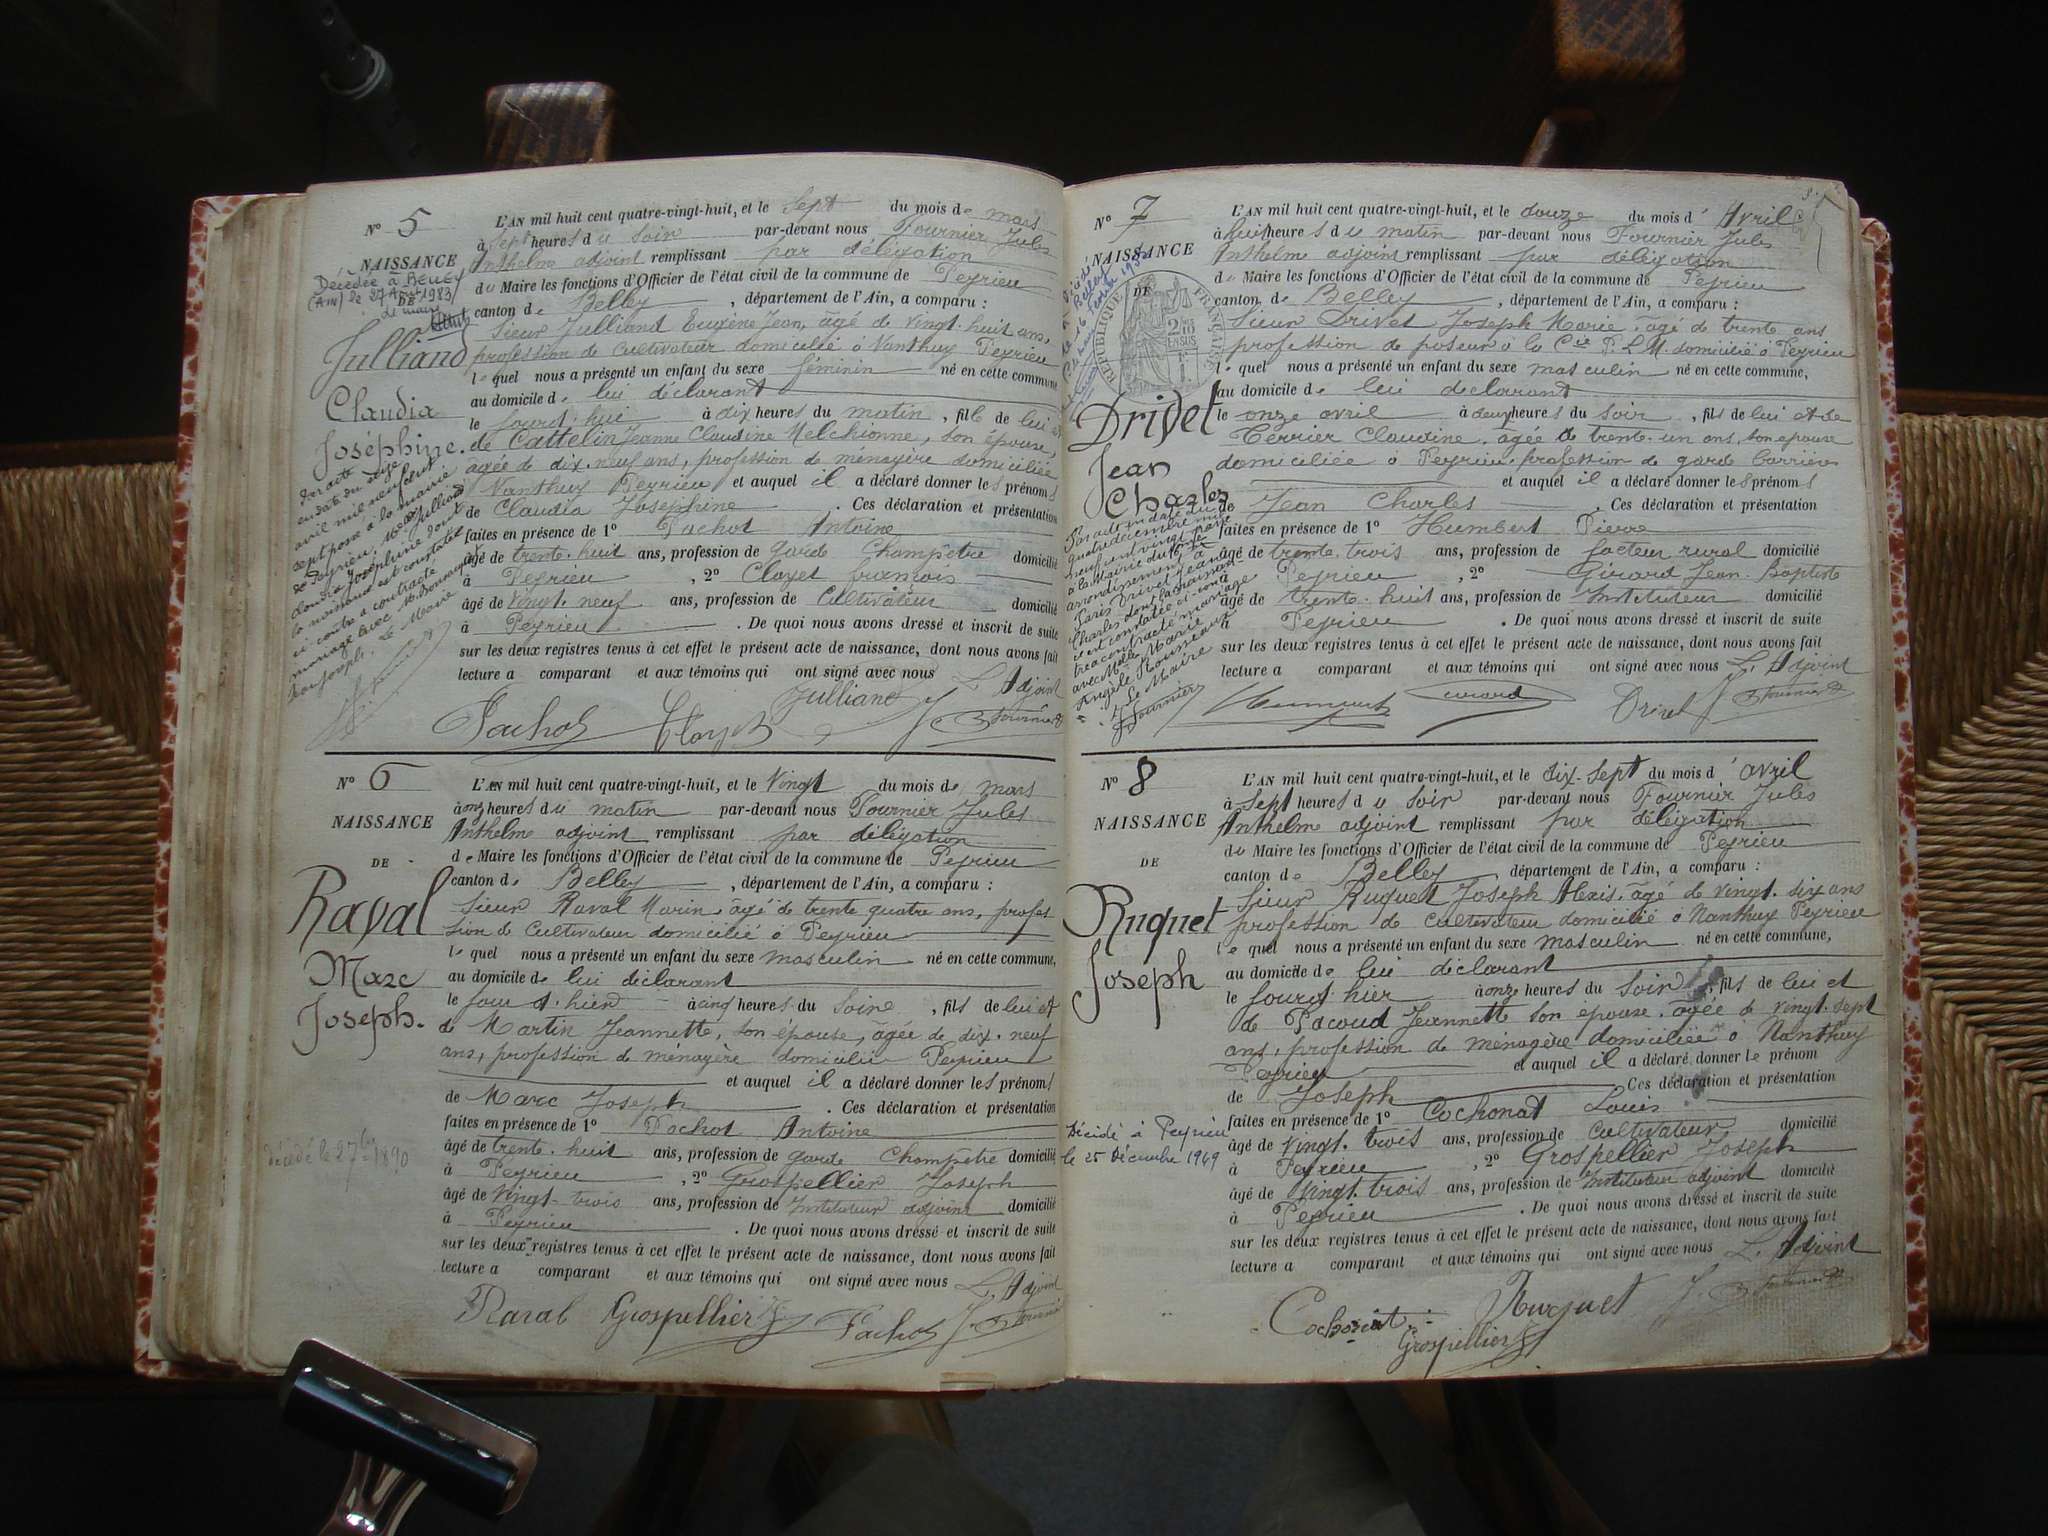 N° 5
NAISSANCE
DE
Décédée à BELLEY
(AIN) le 27 Août 1983
Julliand
Claudia
Joséphine.
Par acte
en date du seize
avril mil neuf cent
sept passé à la mairie
de Peyrieu, Melle Julliand
Claudia Joséphine dont
la naissance est constatée
ci contre a contracté
mariage avec M. 
Joseph. Le Maire
L'AN mil huit cent quatre-vingt-huit, et le Sept du mois de mars
à Sept heures du Soir par-devant nous Fournier Jules
Anthelme adjoint remplissant par délégation
du Maire les fonctions d'Officier de l'état civil de la commune de Peyrieu
canton de Belley, département de l'Ain, a comparu :
Sieur Julliand Eugène Jean, âgé de vingt-huit ans,
profession de Cultivateur domicilié à Nanthuy Peyrieu
lequel nous a présenté un enfant du sexe féminin né en cette commune
au domicile de lui déclarant
le Jourd'hui à dix heures du matin, fille de lui et
de Cattelin Jeanne Claudine Melchionne, son épouse,
âgée de dix-neuf ans, profession de ménagère domiciliée
Nanthuy Peyrieu et auquel il a déclaré donner les prénoms
de Claudia Joséphine. Ces déclaration et présentation
faites en présence de 1° Pachot Antoine
âgé de trente-huit ans, profession de garde Champêtre domicilié
à Peyrieu, 2° Clayet françois
âgé de vingt-neuf ans, profession de Cultivateur domicilié
à Peyrieu. De quoi nous avons dressé et inscrit de suite
sur les deux registres tenus à cet effet le présent acte de naissance, dont nous avons fait
lecture a comparant et aux témoins qui ont signé avec nous L'Adjoint
Pachot Clayet Julliand J. Fournier
N° 6
NAISSANCE
DE
Raval
Marc
Joseph.
décédé le 27 1890
L'AN mil huit cent quatre-vingt-huit, et le Vingt du mois de mars
à onz heures du matin par-devant nous Fournier Jules
Anthelme adjoint remplissant par délégation
de Maire les fonctions d'Officier de l'état civil de la commune de Peyrieu
canton de Belley, département de l'Ain, a comparu :
Sieur Raval Marin, âgé de trente quatre ans, profes-
sion de Cultivateur domicilié à Peyrieu
lequel nous a présenté un enfant du sexe masculin né en cette commune,
au domicile de lui déclarant
le Jour d'hier à cinq heures du Soire, fils de lui et
de Martin Jeannette, son épouse, âgée de dix-neuf
ans, profession de ménagère domiciliée Peyrieu
et auquel il a déclaré donner les prénoms
de Marc Joseph. Ces déclaration et présentation
faites en présence de 1° Pachot Antoine
âgé de trente-huit ans, profession de garde Champêtre domicilié
à Peyrieu, 2° Grospellier Joseph
âgé de Vingt-trois ans, profession de Instituteur adjoint domicilié
à Peyrieu. De quoi nous avons dressé et inscrit de suite
sur les deux registres tenus à cet effet le présent acte de naissance, dont nous avons fait
lecture a comparant et aux témoins qui ont signé avec nous L'Adjoint
Raval Grospellier Pachot J. Fournier
N° 7
NAISSANCE
DE
RÉPUBLIQUE FRANÇAISE
Drivet
Jean
Charles
Par acte en date du
quatre décembre mil
neuf cent vingt
à la mairie du
arrondissement à
Paris Drivet Jean
Charles dont la naissan-
ce est constatée ci-con-
tre a contracté mariage
avec Melle Marie
Angèle Rousseaux
Le Maire
Fournier
L'AN mil huit cent quatre-vingt-huit, et le douze du mois d'Avril
à huit heures du matin par-devant nous Fournier Jules
Anthelme adjoint remplissant par délégation
du Maire les fonctions d'Officier de l'état civil de la commune de Peyrieu
canton de Belley, département de l'Ain, a comparu :
Sieur Drivet Joseph Marie, âgé de trente ans
profession de poseur à la Cie P. L. M. domicilié à Peyrieu
lequel nous a présenté un enfant du sexe masculin né en cette commune,
au domicile de lui déclarant
le onze avril à deux heures du Soir, fils de lui et de
Terrier Claudine, âgée de trente-un ans, son épouse
domiciliée à Peyrieu, profession de garde barrière
et auquel il a déclaré donner les prénoms
de Jean Charles. Ces déclaration et présentation
faites en présence de 1° Humbert Pierre
âgé de trente-trois ans, profession de facteur rural domicilié
à Peyrieu, 2° Girard Jean-Baptiste
âgé de trente-huit ans, profession de Instituteur domicilié
à Peyrieu. De quoi nous avons dressé et inscrit de suite
sur les deux registres tenus à cet effet le présent acte de naissance, dont nous avons fait
lecture a comparant et aux témoins qui ont signé avec nous L'Adjoint
Humbert Girard Drivet J. Fournier
N° 8
NAISSANCE
DE
Ruquet
Joseph
Décédé à Peyrieu
le 25 Décembre 1969
L'AN mil huit cent quatre-vingt-huit, et le dix-sept du mois d'avril
à sept heures du soir par-devant nous Fournier Jules
Anthelme adjoint remplissant par délégation
du Maire les fonctions d'Officier de l'état civil de la commune de Peyrieu
canton de Belley, département de l'Ain, a comparu :
Sieur Ruquet Joseph Alexis, âgé de vingt-six ans
profession de cultivateur domicilié à Nanthuy Peyrieu
lequel nous a présenté un enfant du sexe masculin né en cette commune,
au domicile de lui déclarant
le Jourd'hier à onze heures du Soir, fils de lui et
de Pacoud Jeannette son épouse, âgée de vingt-sept
ans, profession de ménagère domiciliée à Nanthuy
Peyrieu et auquel il a déclaré donner le prénom
de Joseph Ces déclaration et présentation
faites en présence de 1° Cochonat Louis
âgé de vingt-trois ans, profession de cultivateur domicilié
à Peyrieu, 2° Grospellier Joseph
âgé de vingt-trois ans, profession de Instituteur adjoint domicilié
à Peyrieu. De quoi nous avons dressé et inscrit de suite
sur les deux registres tenus à cet effet le présent acte de naissance, dont nous avons fait
lecture a comparant et aux témoins qui ont signé avec nous L'Adjoint
Cochonat Ruquet J. Fournier
Grospellier